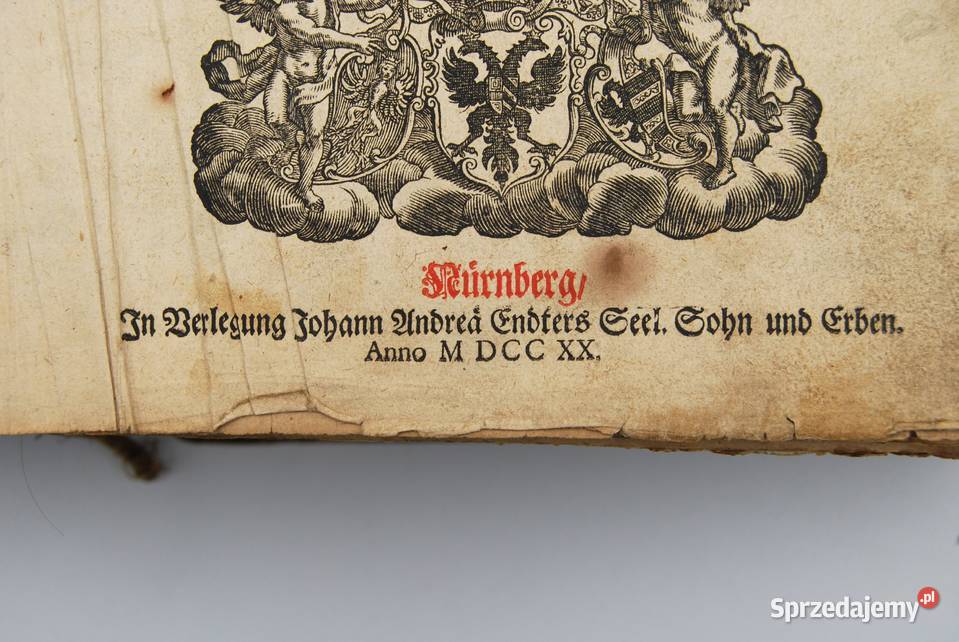 Nürnberg/
In Verlegung Johann Andreä Endters Seel. Sohn und Erben.
Anno M DCC XX.
Sprzedajemy.pl